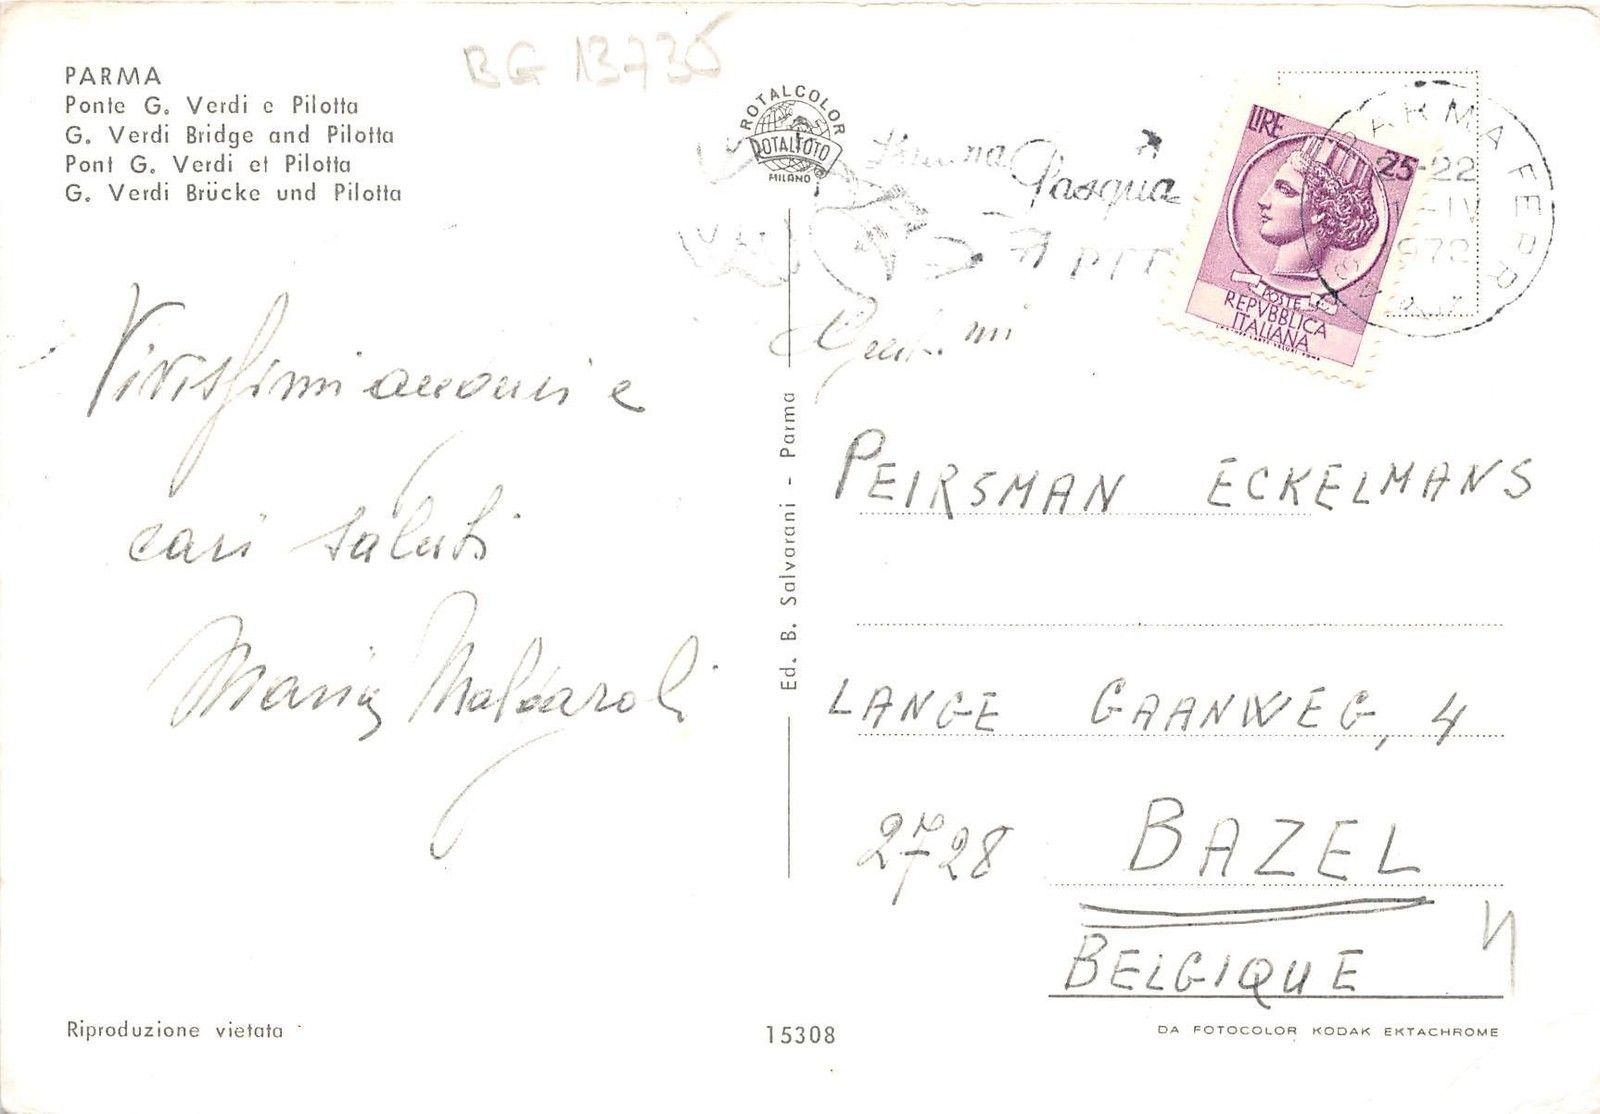 BG 13736
PARMA
Ponte G. Verdi e Pilotta
G. Verdi Bridge and Pilotta
Pont G. Verdi et Pilotta
G. Verdi Brücke und Pilotta
ROTALCOLOR
ROTALFOTO
MILANO
Pasqua
PTT
LIRE 25
POSTE
REPVBBLICA
ITALIANA
PARMA FERR
-22
-IV
Vivissimi auguri e
cari saluti
Maria
Ed. B. Salvarani - Parma
PEIRSMAN ECKELMANS
LANGE GAANWEG, 4
2728 BAZEL
BELGIQUE
Riproduzione vietata
15308
DA FOTOCOLOR KODAK EKTACHROME